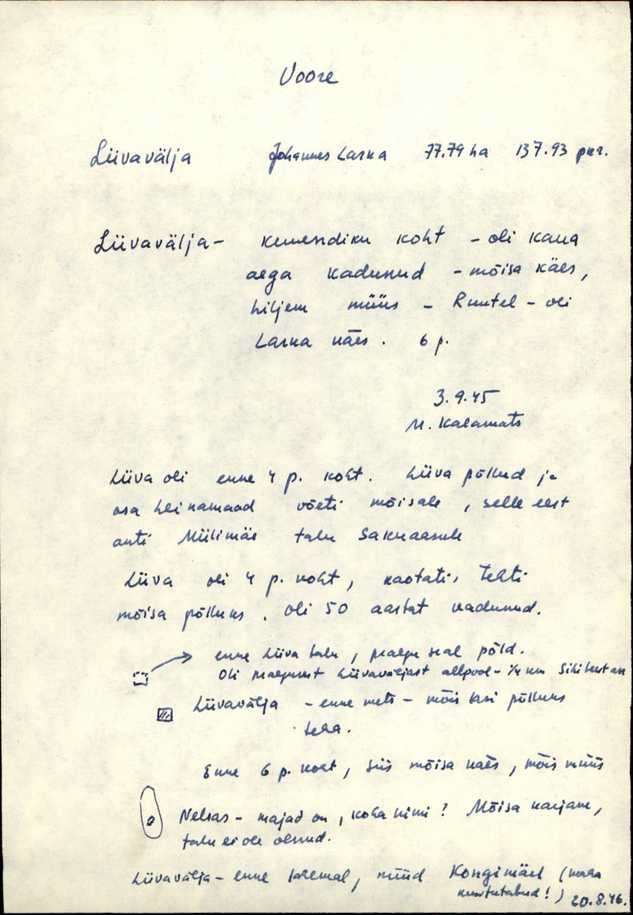 Voore
Liivavälja Johannes Laska 77.79 ha 137.93 pkr.
Liivavälja - koht - oli kaua
aega kadunud - mõisa käes,
hiljem müüs - Ruutel - oli
Laska käes. 6 p.
3.9.45
M. Kalamats
Liiva oli enne 4 p. koht. Liiva põllud ja
osa heinamaad võeti mõisale, selle eest
anti Miilimäe talu
Liiva oli 4 p. koht, kaotati, tehti
mõisa põlluks. Oli 50 aastat kadunud.
enne Liiva talu, praegu seal põld.
Oli praegusest Liivaväljast allpool - 1/4 km
Liivavälja - enne mets - mõis lasi põlluks
teha.
Enne 6 p. koht, siis mõisa käes, mõis müüs
Nelsas - majad on, koha nimi? Mõisa karjane,
talu ei ole olnud.
Liivavälja - enne talemal, nüüd Kongimäel (maha
20.8.46.